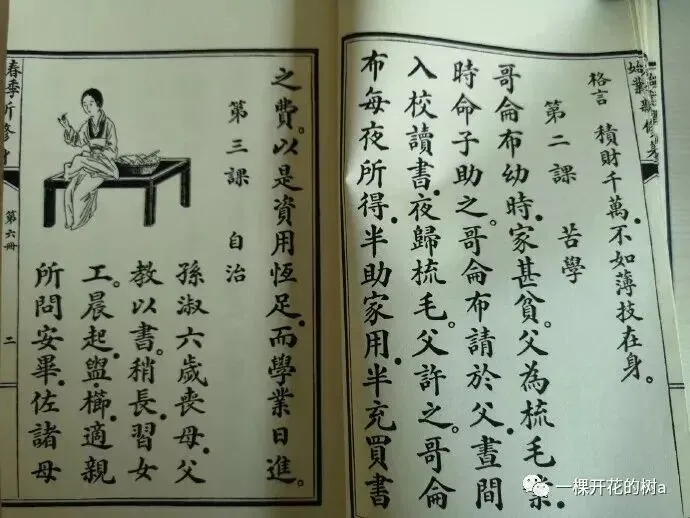 格言 積財千萬.不如薄技在身。
第二課 苦學
哥侖布幼時.家甚貧。父為梳毛業.
時命子助之。哥侖布請於父.晝間
入校讀書.夜歸梳毛。父許之。哥侖
布每夜所得.半助家用.半充買書
之費。以是資用恆足.而學業日進。
第三課 自治
孫淑六歲喪母.父
教以書。稍長.習女
工。晨起.盥櫛.適親
所問安畢.佐諸母
春季
第六冊
二
一棵开花的树a